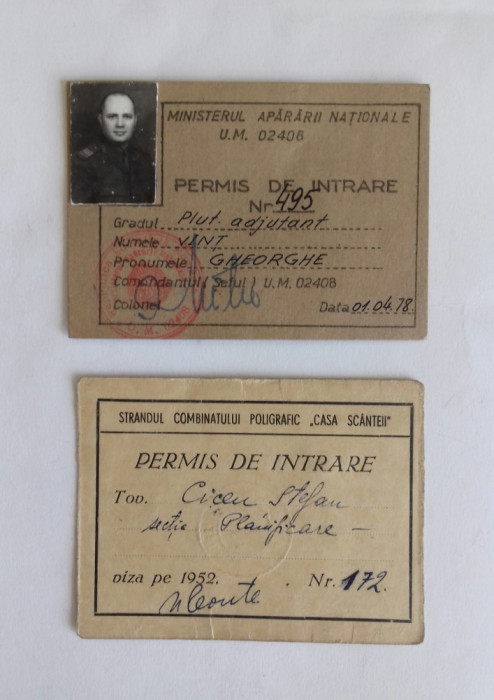 MINISTERUL APĂRĂRII NAȚIONALE
U.M. 02408
PERMIS DE INTRARE
Nr. 495
Gradul Plut. adjutant
Numele VINȚ
Pronumele GHEORGHE
Comandantul (Șeful) U.M. 02408
Colonel
Data 01.04.78.
U.M. 02408
STRANDUL COMBINATULUI POLIGRAFIC „CASA SCÂNTEII"
PERMIS DE INTRARE
Tov. Ciceu Stefan
secția Planificare —
viza pe 1952. Nr. 172.